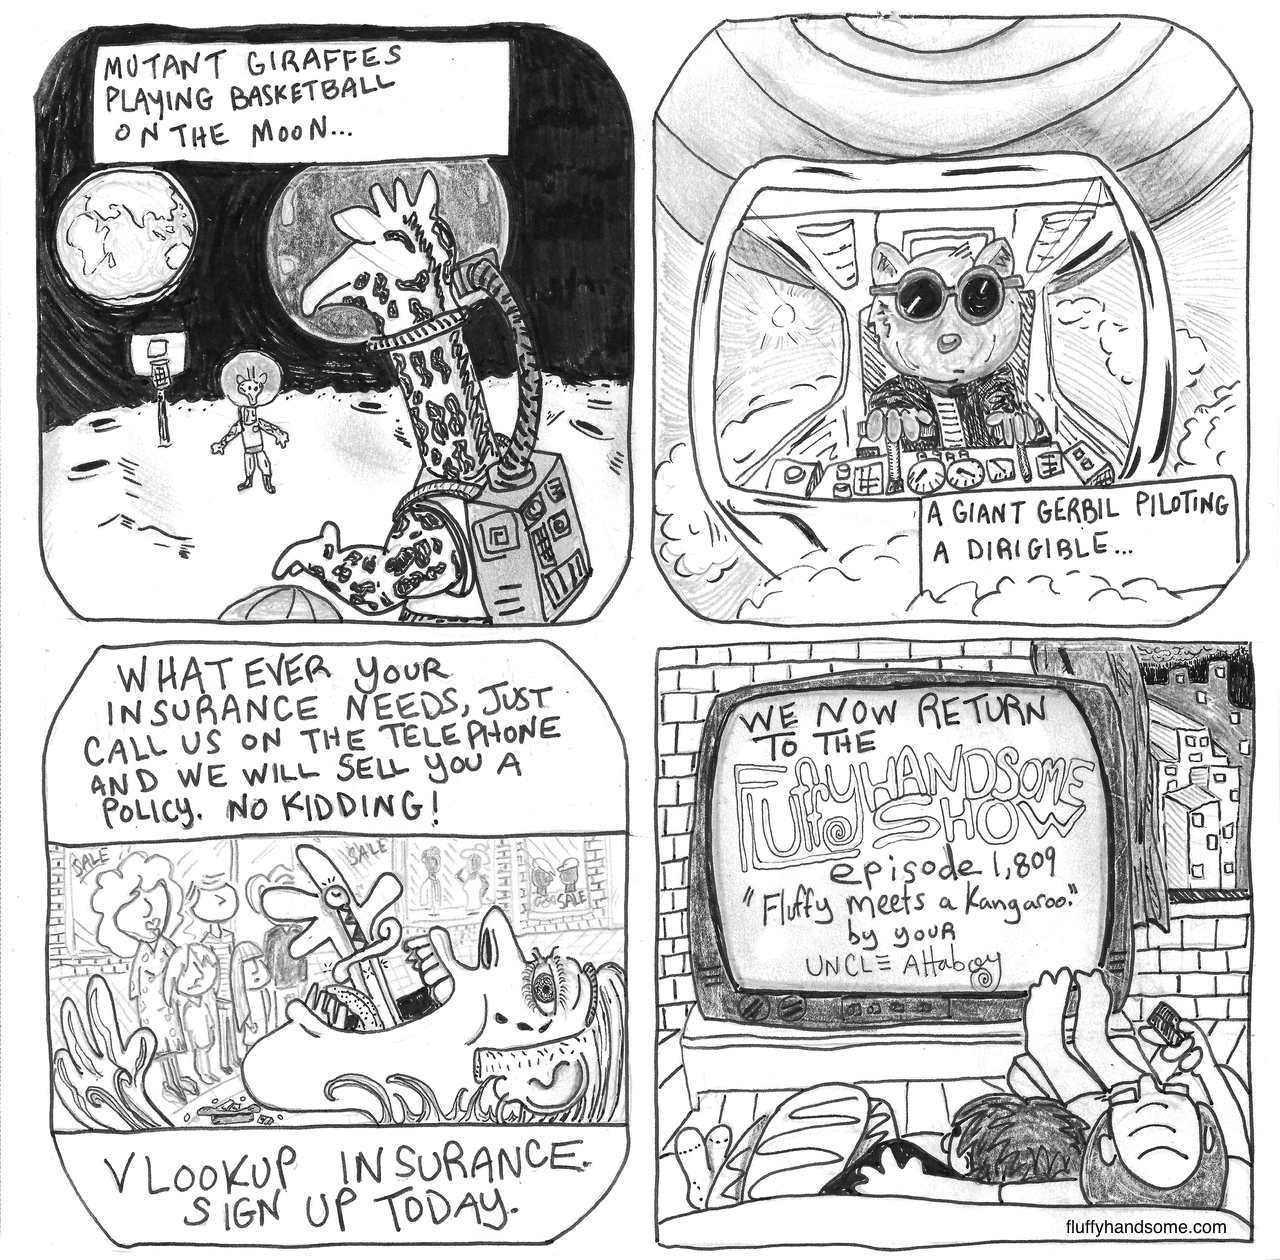 MUTANT GIRAFFES
PLAYING BASKETBALL
ON THE MOON...
A GIANT GERBIL PILOTING
A DIRIGIBLE...
WHATEVER YOUR
INSURANCE NEEDS, JUST
CALL US ON THE TELEPHONE
AND WE WILL SELL YOU A
POLICY. NO KIDDING!
SALE
SALE
SALE
VLOOKUP INSURANCE.
SIGN UP TODAY.
WE NOW RETURN
TO THE
FLUffy HANDSOME
SHOW
episode 1,809
"Fluffy meets a Kangaroo."
by your
UNCLE Attaboy
fluffyhandsome.com